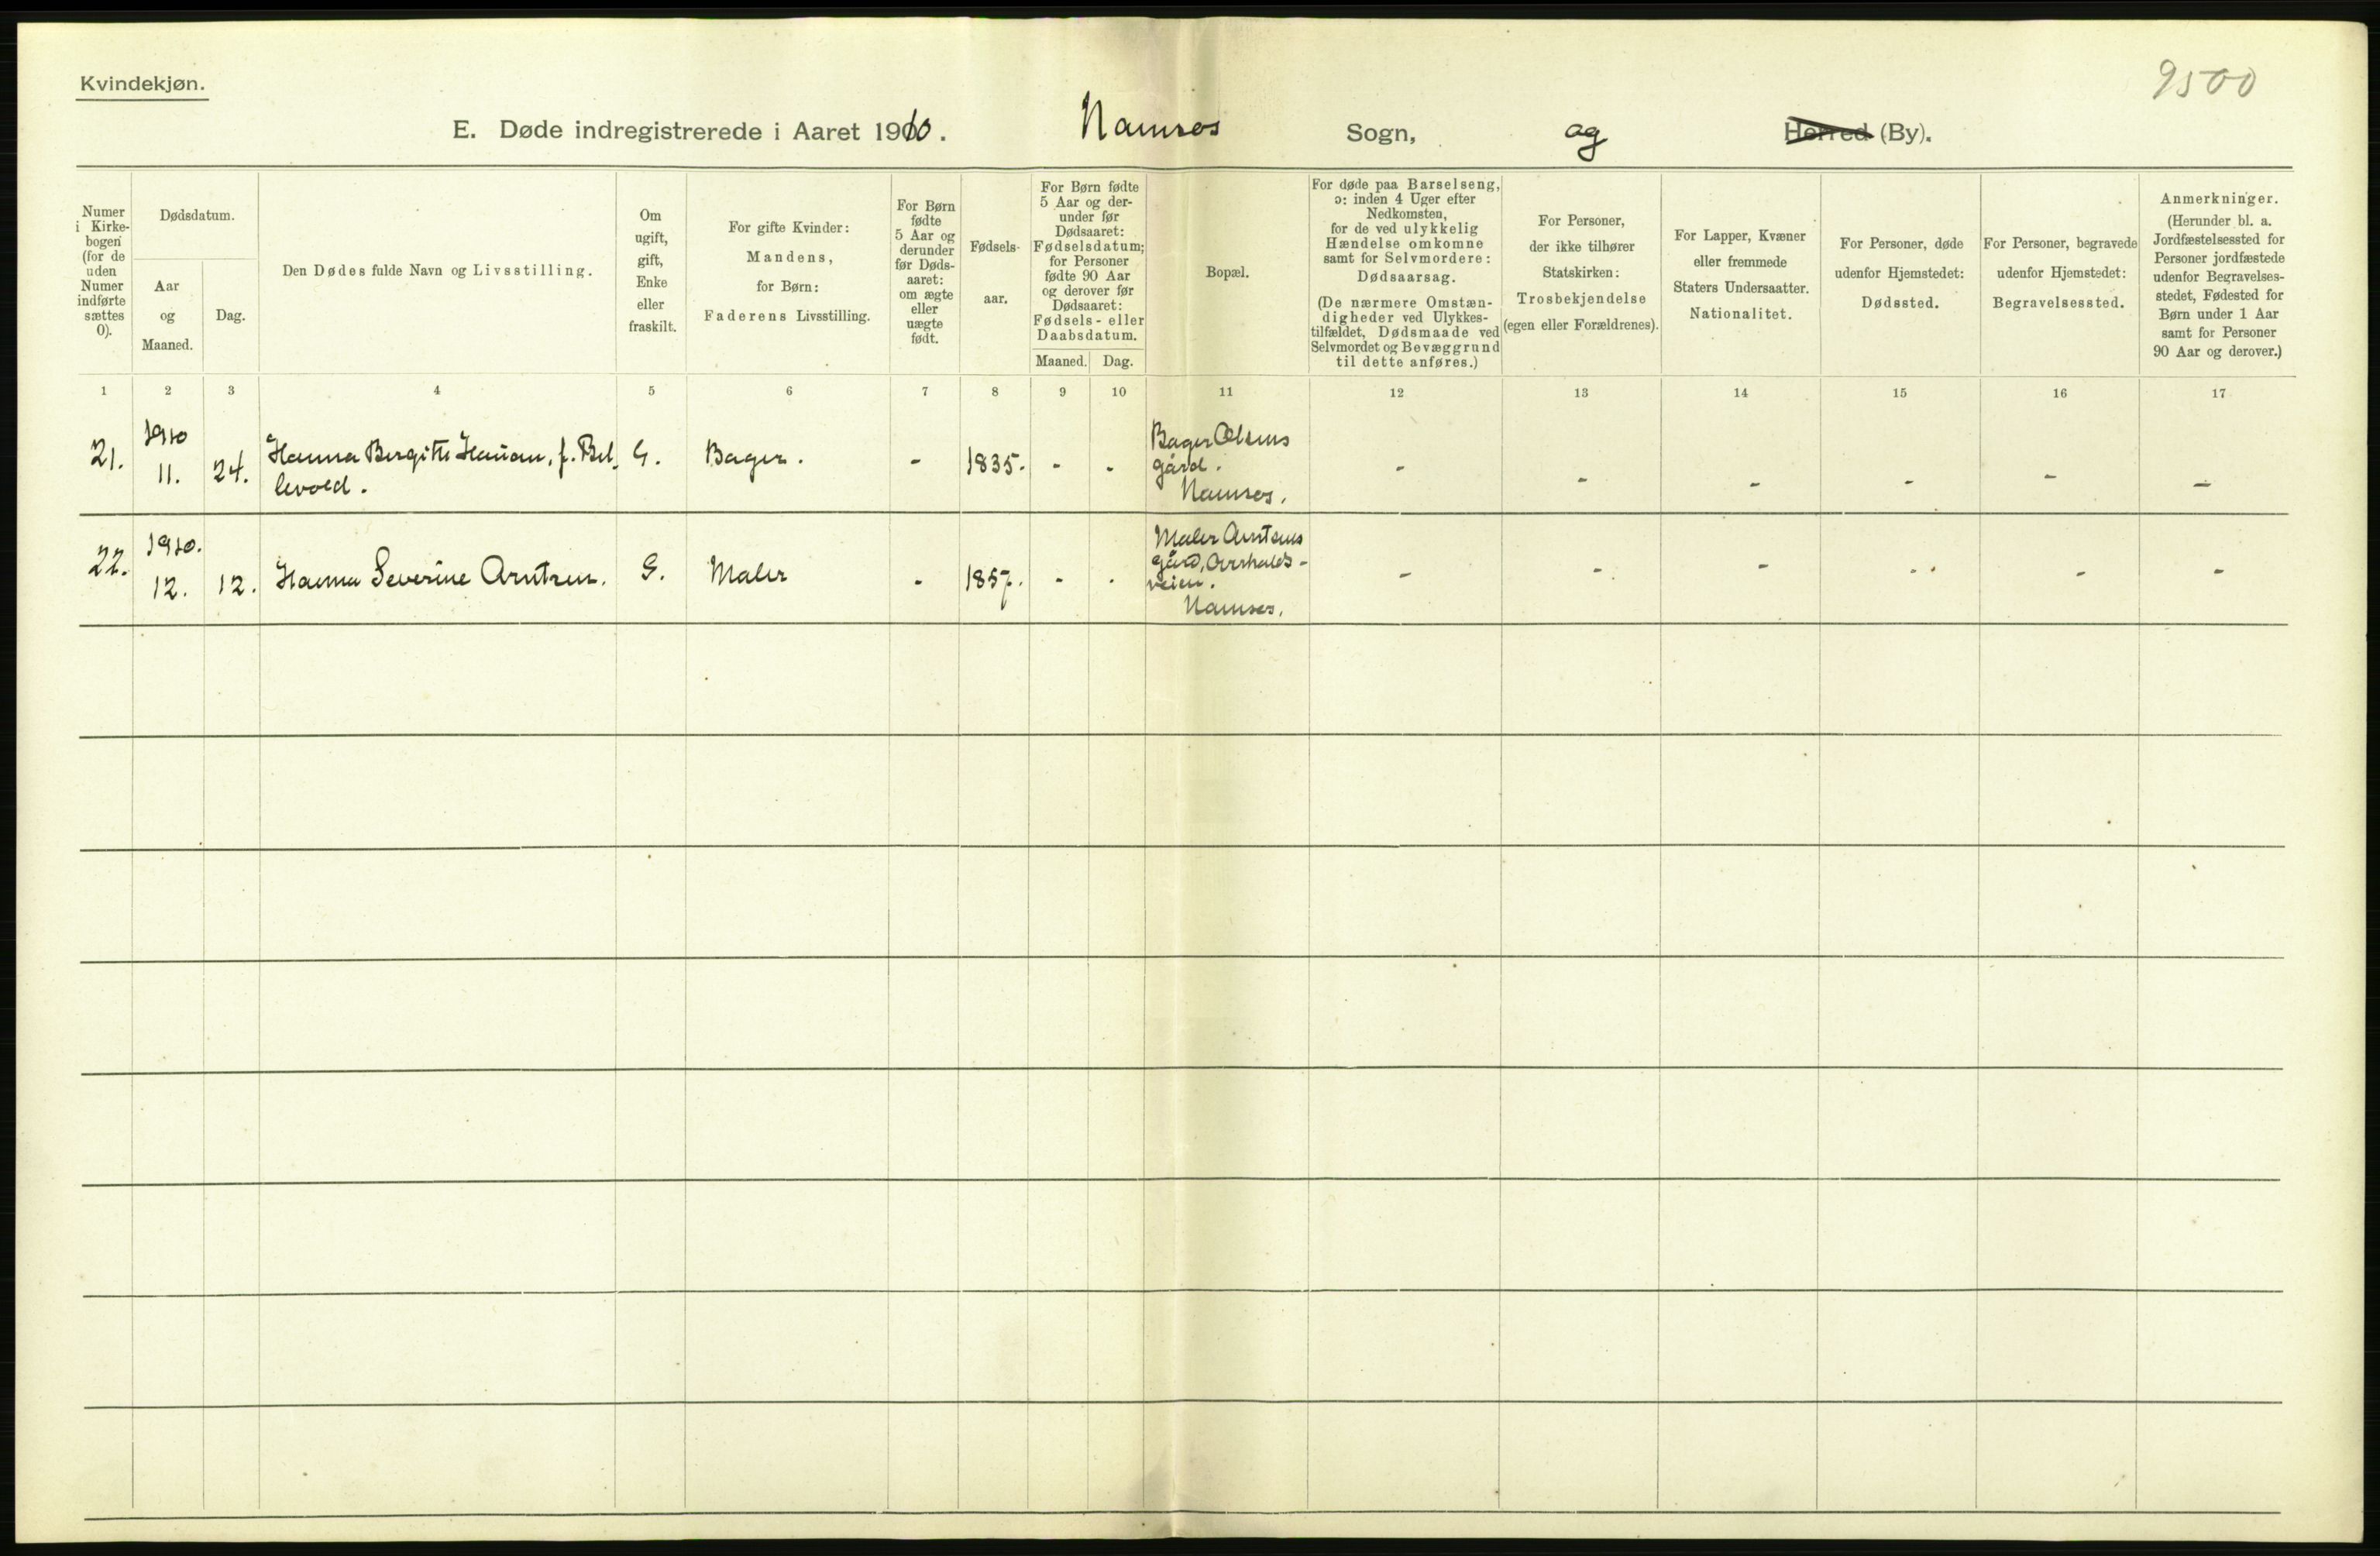 Kvindekjøn.
9500
E. Døde indregistrerede i Aaret 1910. Namsos Sogn, og Herred (By).
Numer i Kirkebogen (for de uden Numer indførte sættes 0).
Dødsdatum.
Aar og Maaned.
Dag.
Den Dødes fulde Navn og Livsstilling.
Om ugift, gift, Enke eller fraskilt.
For gifte Kvinder: Mandens, for Børn: Faderens Livsstilling.
For Børn fødte 5 Aar og derunder før Dødsaaret: om ægte eller uægte født.
Fødselsaar.
For Børn fødte 5 Aar og derunder før Dødsaaret: Fødselsdatum; for Personer fødte 90 Aar og derover før Dødsaaret: Fødsels- eller Daabsdatum.
Maaned. Dag.
Bopæl.
For døde paa Barselseng, ɔ: inden 4 Uger efter Nedkomsten, for de ved ulykkelig Hændelse omkomne samt for Selvmordere: Dødsaarsag.
(De nærmere Omstændigheder ved Ulykkestilfældet, Dødsmaade ved Selvmordet og Bevæggrund til dette anføres.)
For Personer, der ikke tilhører Statskirken: Trosbekjendelse (egen eller Forældrenes).
For Lapper, Kvæner eller fremmede Staters Undersaatter. Nationalitet.
For Personer, døde udenfor Hjemstedet: Dødssted.
For Personer, begravede udenfor Hjemstedet: Begravelsessted.
Anmerkninger.
(Herunder bl. a. Jordfæstelsessted for Personer jordfæstede udenfor Begravelsesstedet, Fødested for Børn under 1 Aar samt for Personer 90 Aar og derover.)
1 2 3 4 5 6 7 8 9 10 11 12 13 14 15 16 17
21. 1910 11. 24. Hanna Bergitte f. Bellevold. G. Bager. - 1835. - - Bager Olsens gård. Namsos. - - - - - -
22. 1910. 12. 12. Hanna Severine Arntzen. G. Maler - 1857. - - Maler Arntsens gård, veien. Namsos. - - - - - -